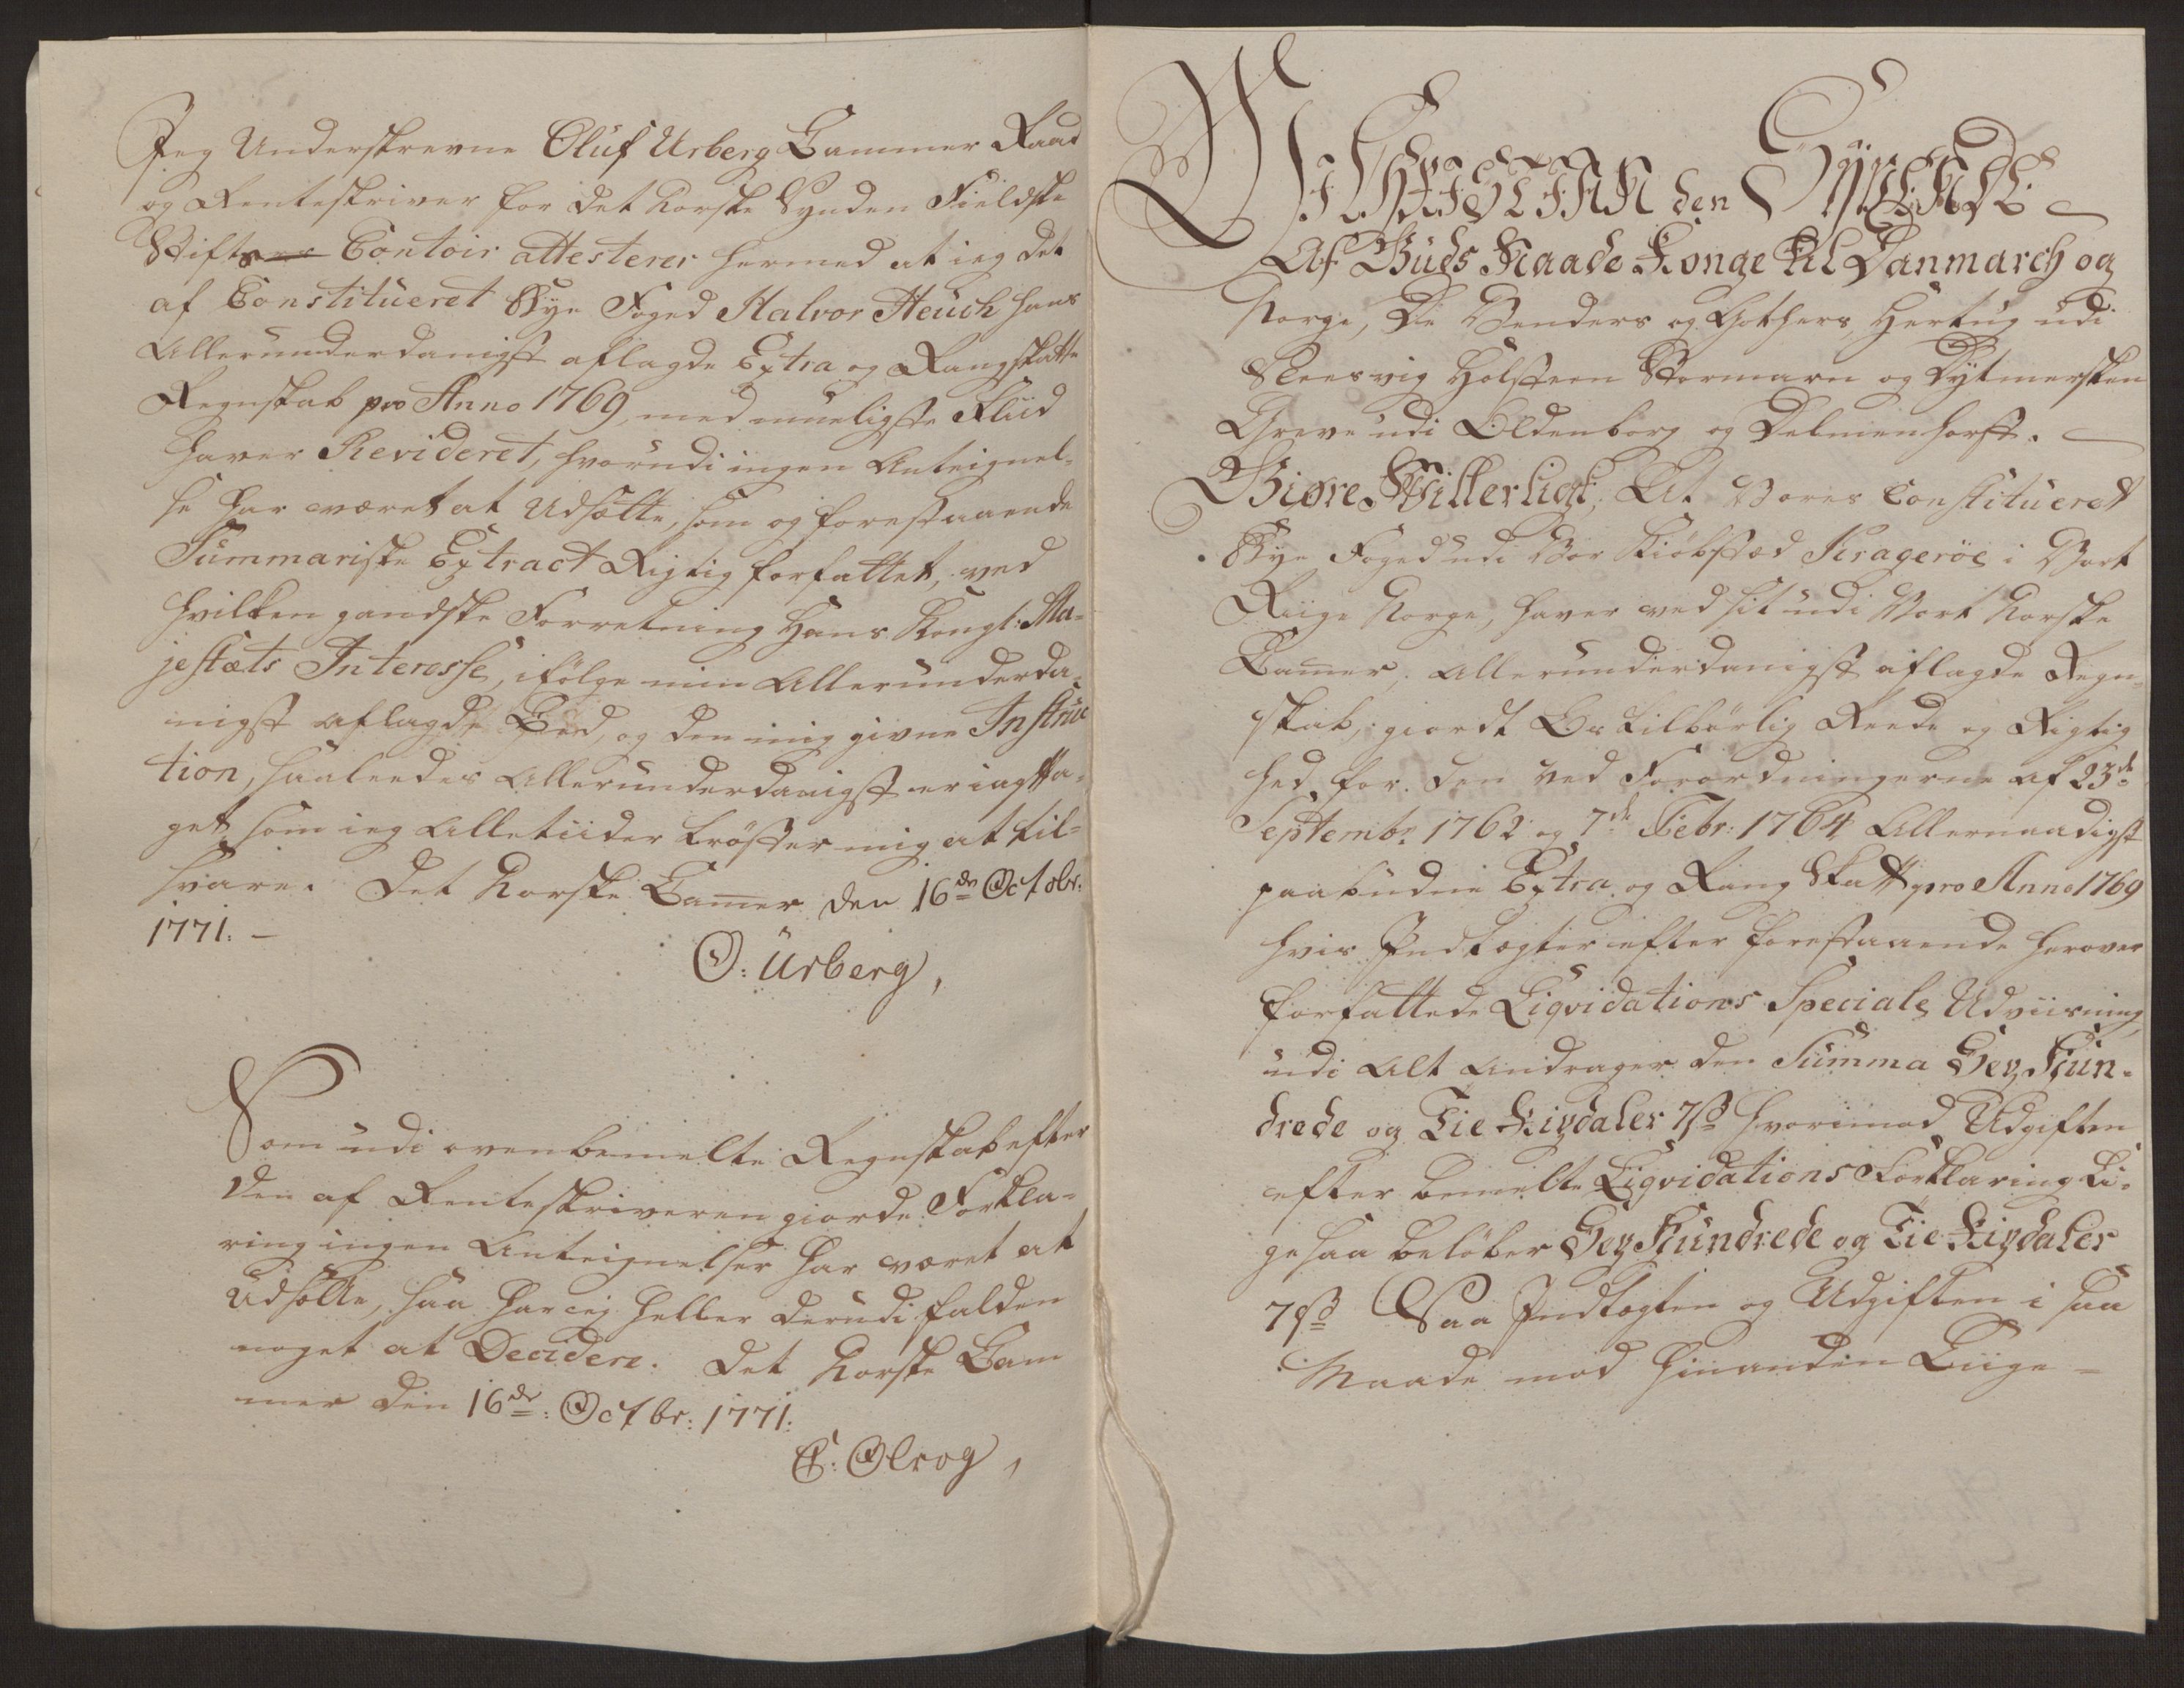 Jeg Underskrevne Oluf Urberg Cammer Raad
og Renteskriver for det Norske Synden Fieldske
Stifts Contoir attesterer hermed at jeg det
af Constitueret Bye Foged Halvor Heuch hans
Allerunderdanigst aflagde Extra og Rangskatte
Regnskab pro Anno 1769, med mueligste Fliid
haver Revideret, hvorudi ingen Anteignel-
se har været at Udsætte, som og forestaaende
Summariske Extract Rigtig forfattet, ved
hvilken gandske Forretning Hans Kongl: Ma-
jestæts Interesse, ifölge min Allerunderda-
nigst aflagde Eed, og den mig givne Instruc
tion, saaleedes Allerunderdanigst er iagtta-
get som jeg Alletiider tröster mig at til-
svare. Det Norske Camer den 16de Octobr:
1771. -
O: Urberg,
Som udi ovenbemelte Regnskab efter
den af Renteskriveren giorde Forkla-
ring ingen Anteignelser har været at
Udsætte, saa har ej heller derudi falden
noget at Decidere. Det Norske Cam
mer den 16de: Octbr: 1771:
C: Olrog,
Wi CHRISTIAN den SYVENDE
Af Guds Naade Konge til Danmarch og
Norge, De Venders og Gothers, Hertug udi
Slesvig Holsteen Stormarn og Dytmersken
Greve udi Oldenborg og Delmenhorst.
Giöre Witterligt; At Vores Constitueret
Bye Foged udi Vor Kiöbstæd Krageröe i Vort
Riige Norge, haver ved sit udi Vort Norske
Camer, Allerunderdanigst aflagde Regn-
skab, giordt Os tilbörlig Reede og Rigtig
hed for den ved Forordningerne af 23de
Septembr 1762 og 7de Febr: 1764 Allernaadigst
paabudne Extra og Rang Skatt pro Anno 1769
hvis Indtægter efter forestaaende herover
forfattede Liqvidations Speciale Udviisning,
udi alt andrager den Summa Sex Hun-
drede og Tie Rixdaler 7 ß hvorimod Udgiften
efter bemelte Liqvidations Forklaring Li-
gesaa belöber Sex Hundrede og Tie Rixdaler
7 ß Saa Indtægten og Udgiften i saa
Maade mod hinanden Liige -